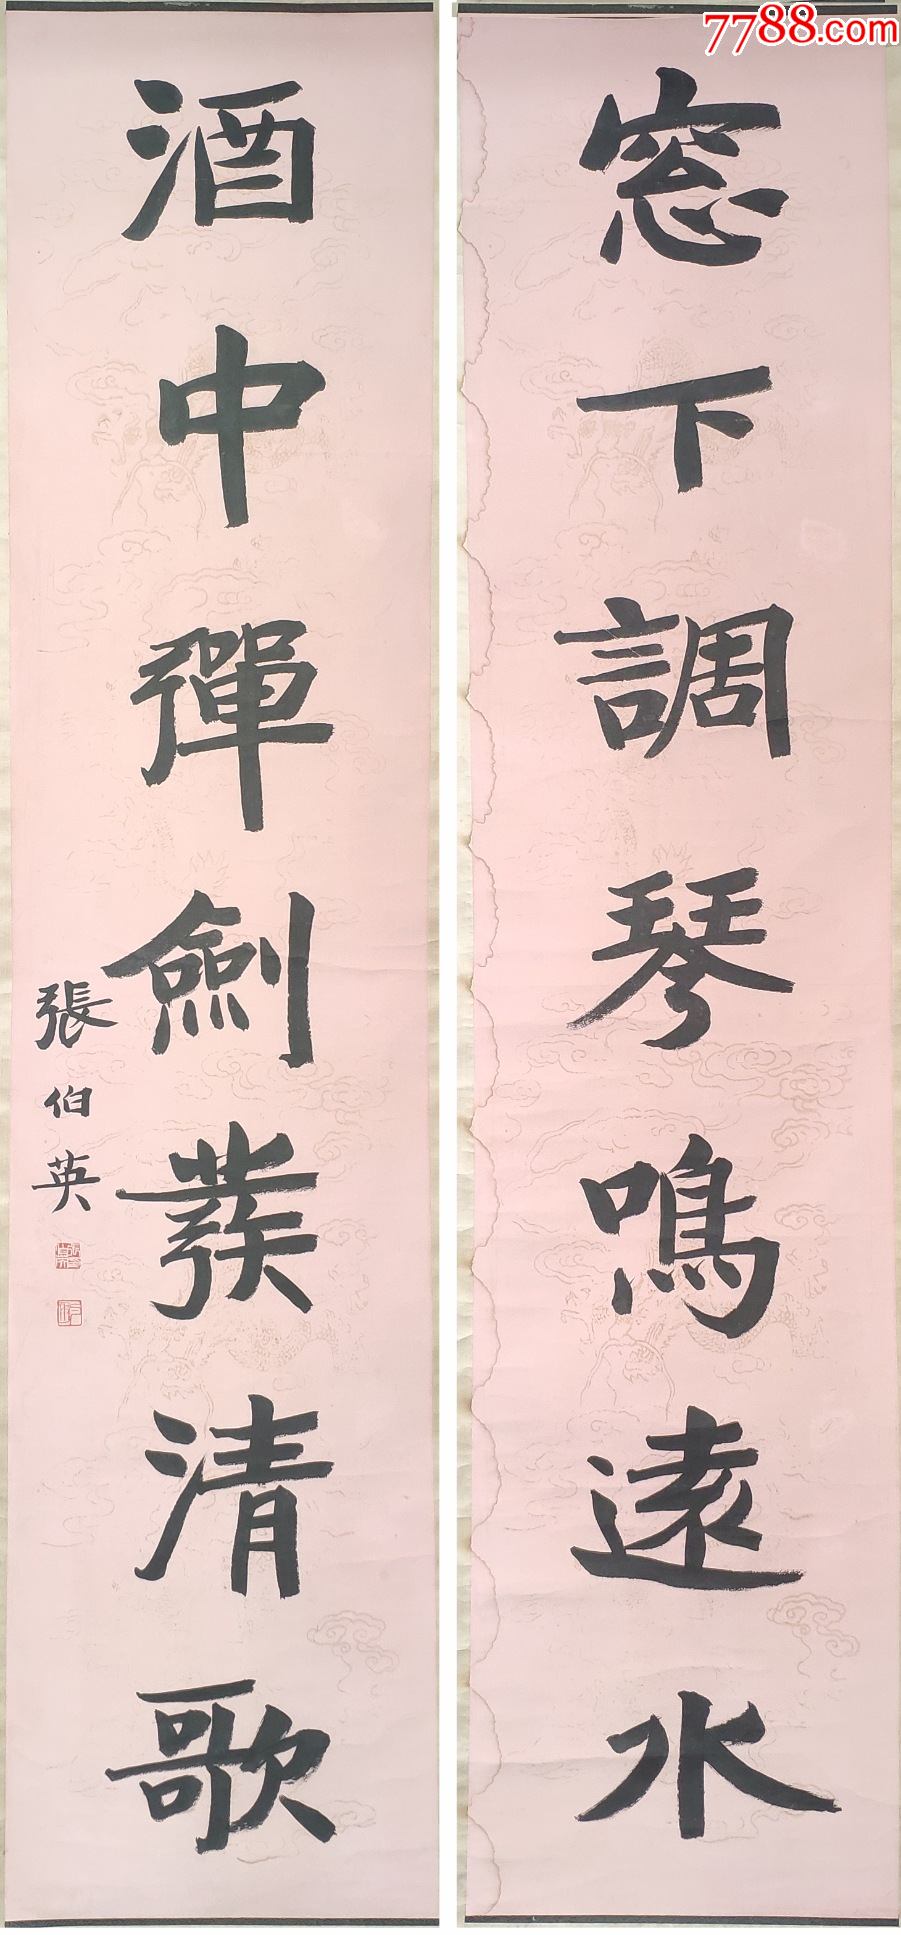 7788.com
窓下調琴鳴遠水
酒中彈劍發清歌
張伯英